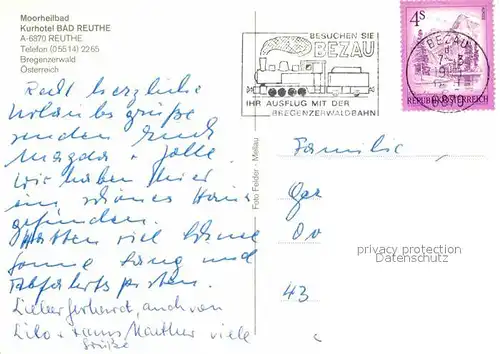 Moorheilbad
Kurhotel BAD REUTHE
A-6870 REUTHE
Telefon (05514) 2265
Bregenzerwald
Österreich
BESUCHEN SIE
BEZAU
IHR AUSFLUG MIT DER
BREGENZERWALDBAHN
4S
REPUBLIK ÖSTERREICH
BEZAU
Recht herzliche
Urlaubsgrüße
senden Euch
Magda +
Wir haben hier
ein schönes Haus
gefunden.
Hatten viel Schnee
Sonne und
Abfahrtspisten.
Lieber Gerhardt, auch von
Lilo + Hans viele
Grüße
Foto Felder - Mellau
Familie
43
privacy protection
Datenschutz